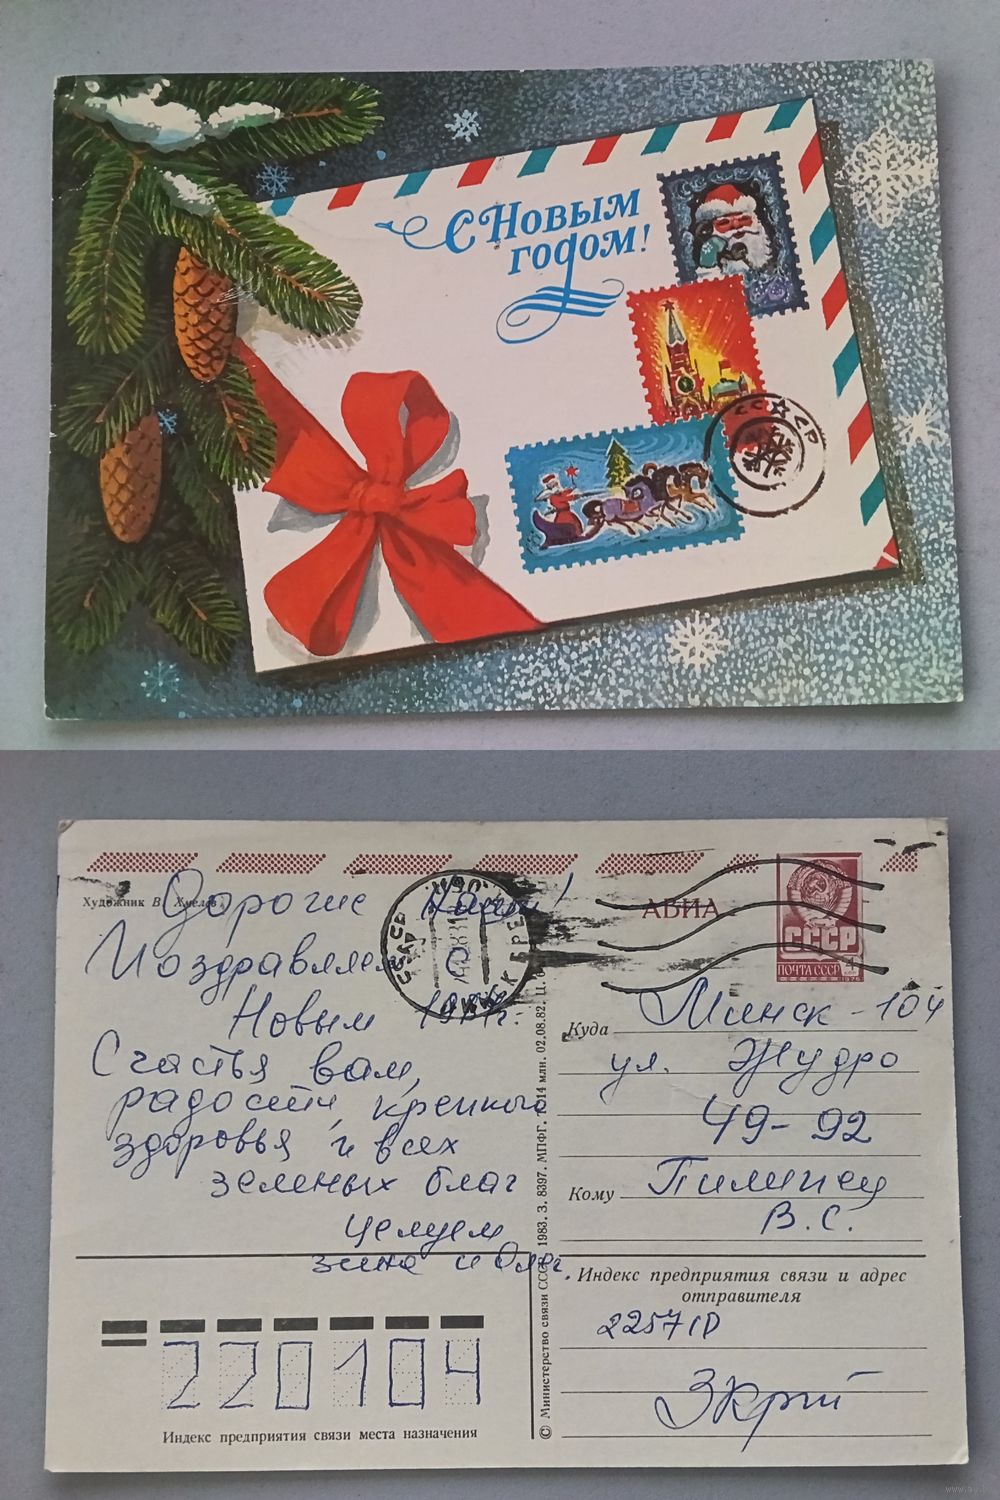 С Новым
годом!
СССР
Художник В.
АВИА
СССР
ПОЧТА СССР
4
1976
Дорогие наши!
Поздравляем с
Новым 1984г.
Счастья вам,
радости, крепкого
здоровья и всех
земных благ
Целуем
Зина и Олег.
Куда Минск-104
ул. Жудро
49-92
Кому
В. С.
Индекс предприятия связи и адрес
отправителя
225710
220104
Индекс предприятия связи места назначения
© Министерство связи СССР, 1983. З. 8397. МПФГ. 14 млн. 02.08.82. Ц.